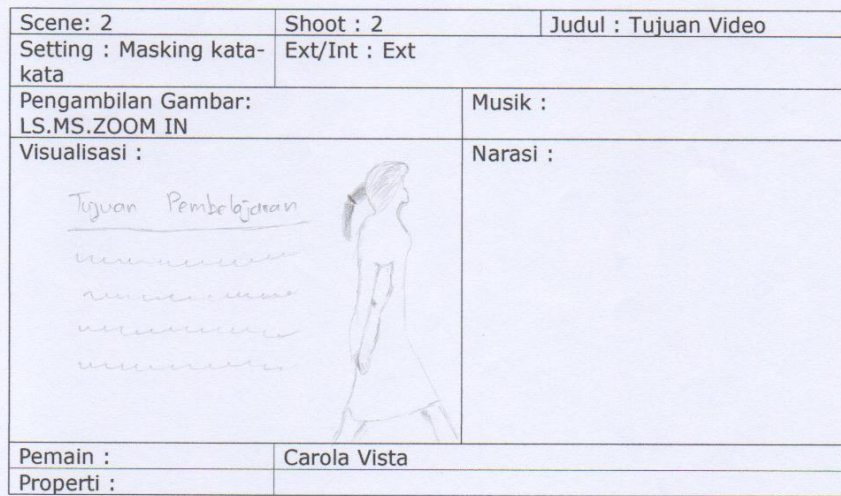 Scene: 2
Shoot : 2
Judul : Tujuan Video
Setting : Masking kata-
kata
Ext/Int : Ext
Pengambilan Gambar:
LS.MS.ZOOM IN
Musik :
Visualisasi :
Narasi :
Tujuan Pembelajaran
Pemain :
Carola Vista
Properti :